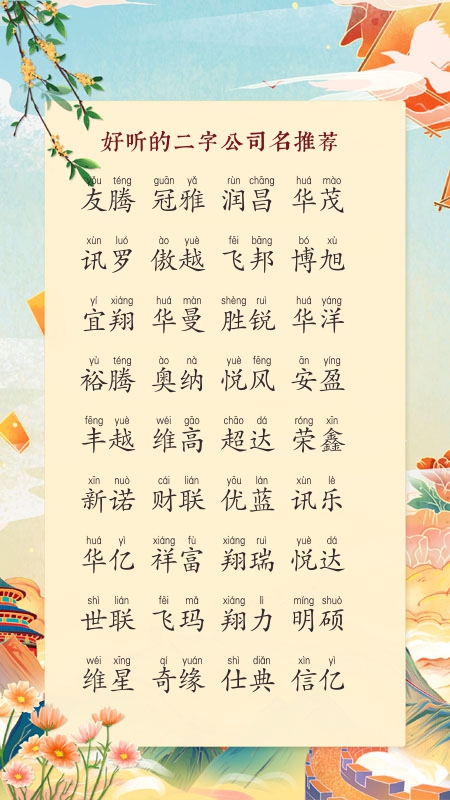 好听的二字公司名推荐
yǒu téng guān yǎ rùn chāng huá mào
友腾 冠雅 润昌 华茂
xùn luó ào yuè fēi bāng bó xù
讯罗 傲越 飞邦 博旭
yí xiáng huá màn shèng ruì huá yáng
宜翔 华曼 胜锐 华洋
yù téng ào nà yuè fēng ān yíng
裕腾 奥纳 悦风 安盈
fēng yuè wéi gāo chāo dá róng xīn
丰越 维高 超达 荣鑫
xīn nuò cái lián yōu lán xùn lè
新诺 财联 优蓝 讯乐
huá yì xiáng fù xiáng ruì yuè dá
华亿 祥富 翔瑞 悦达
shì lián fēi mǎ xiáng lì míng shuò
世联 飞玛 翔力 明硕
wéi xīng qí yuán shì diǎn xìn yì
维星 奇缘 仕典 信亿